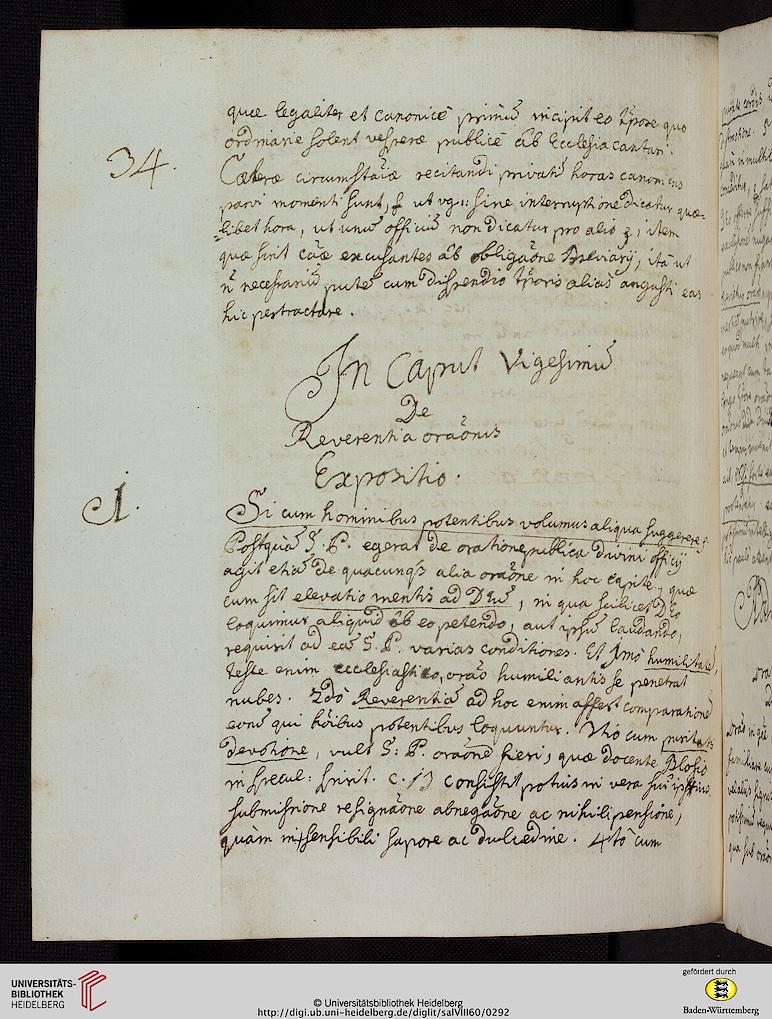 quæ legaliter et canonicè primū incipit eo tp̄ore quo
ordinarie solent vesperæ publicè ab Ecclesia cantari.
34.
Cæteræ circumstāīæ recitandi privatī horas canonicas
parvi momenti sunt, ut vg: sine interruptione dicatur quæ-
libet hora, ut unū officiū non dicatur pro alio &, item
quæ sint cāæ excusantes ab obligaōne Breviarij, ita ut
n̄ necessariū putē cum dispendio tp̄oris alias angusti eas
hic pertractare.
In Caput Vigesimū
De
Reverentia oraōnis
Expositio.
1.
Si cum hominibus potentibus volumus aliqua suggerere
Postquā S. P. egerat de oratione publica divini officij
agit etiā de quacunq3 alia oraōne in hoc capite, quæ
cum sit elevatio mentis ad Deū, in qua scilicet Deo
loquimur aliquid ab eo petendo, aut ipsū laudando,
requirit ad eā S. P. varias conditiones. Et Imò humilitatē,
teste enim ecclesiastico, orāo humiliantis se penetrat
nubes. 2dò Reverentiā ad hoc enim affert comparationē
eorū qui hōibus potentibus loquuntur. 3tiò cum puritatis
devotione, vult S: P. oraōnē fieri, quæ docente Blosio
in specul: spirit. c. 13 consistit potius in vera sui ipsius
submissione resignaōne abnegaōne ac nihilipensione,
quàm in sensibili sapore ac dulcedine. 4tò cum
UNIVERSITÄTS-
BIBLIOTHEK
HEIDELBERG
© Universitätsbibliothek Heidelberg
http://digi.ub.uni-heidelberg.de/diglit/salVIII60/0292
gefördert durch
Baden-Württemberg